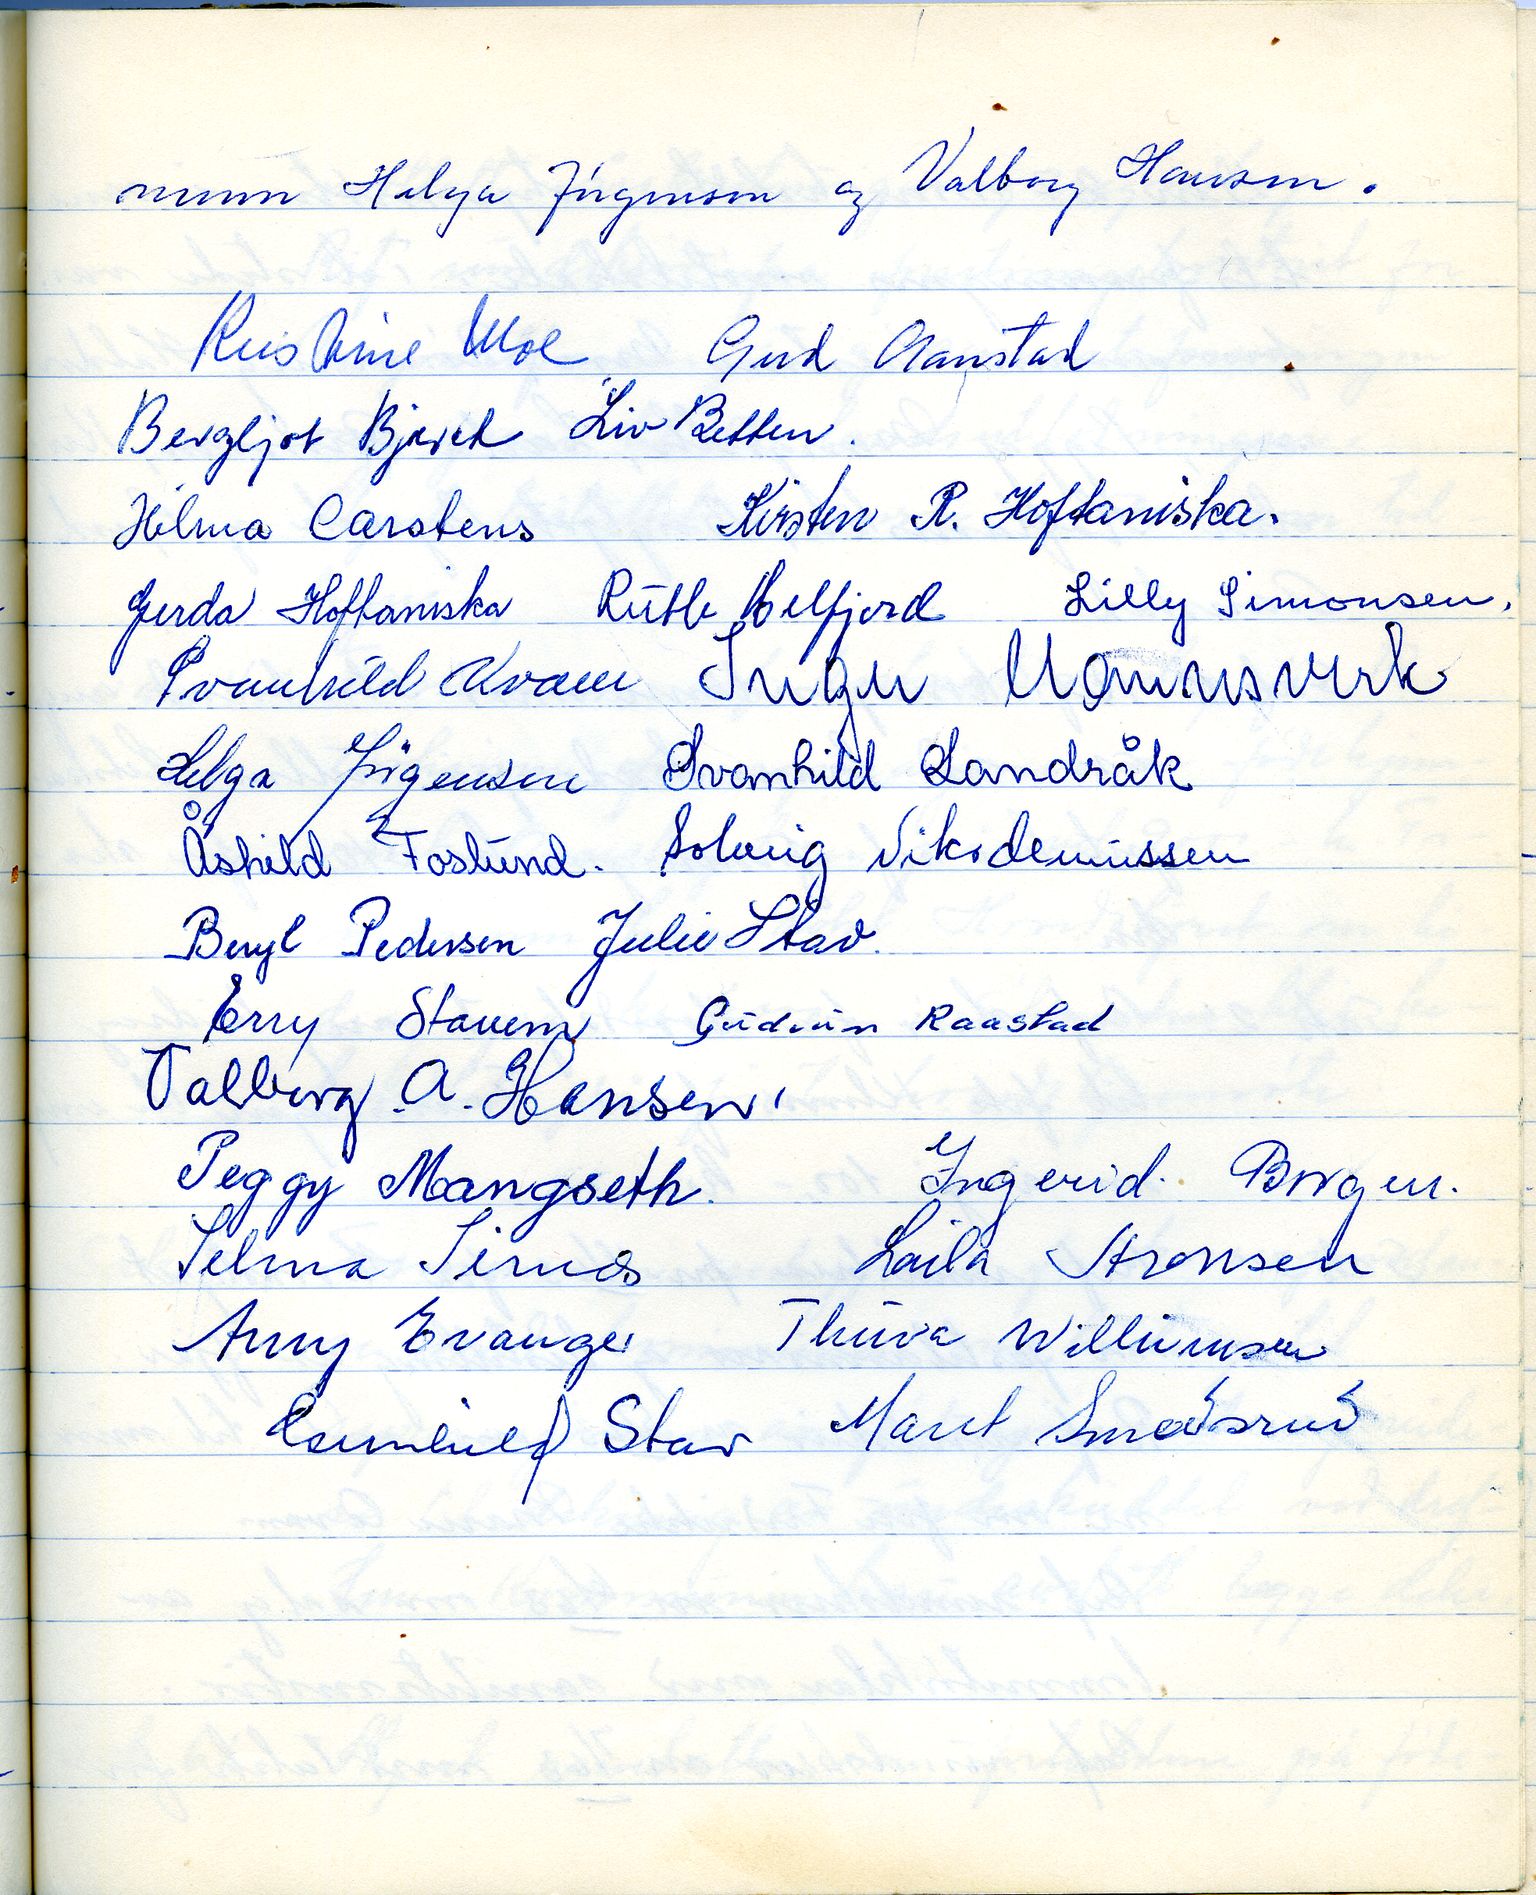 Helga Jörgensen og Valborg Hansen.
Kristine Moe Gerd Aanstad
Bergljot Bjerch Liv Betten.
Hilma Carstens Kirsten R. Hoftaniska.
Gerda Hoftaniska Ruth Melfjord Lilly Simonsen.
Svanhild Kvam Inger
Helga Jörgensen Svanhild Landråk
Åshild Foslund. Solveig Nikodemussen
Beryl Pedersen Julie Stav.
Erry Stavem Gudrun Raastad
Valborg A. Hansen.
Peggy Mangseth. Ingerid Borgen.
Selma Sirnes Laila Aronsen
Anny Evanger Thura Williumsen
Stav Marit Smedsrud